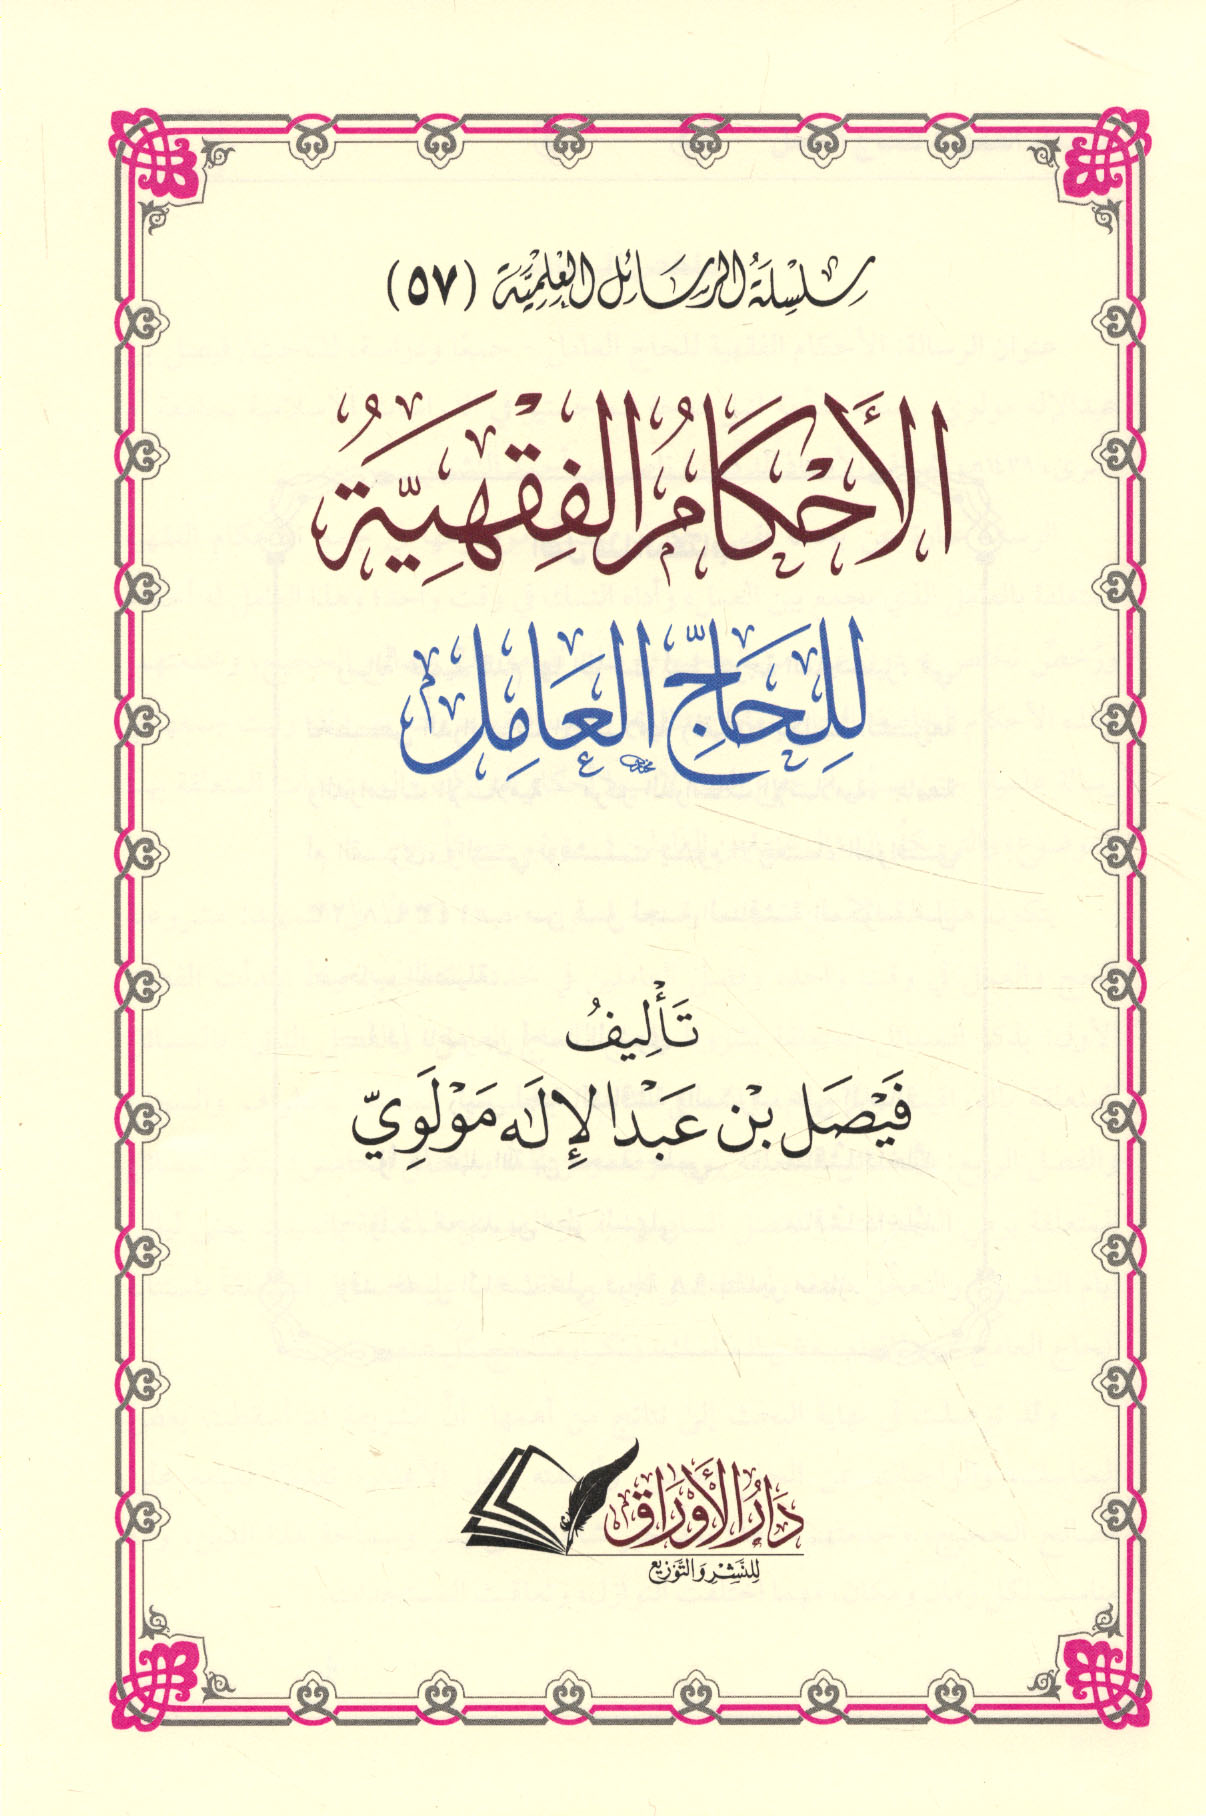 سِلْسِلَةُ الرَّسَائِلِ العِلْمِيَّةِ (٥٧)
الأَحْكَامُ الفِقْهِيَّةُ
لِلْحَاجِّ العَامِلِ
تَأْلِيفُ
فَيْصَل بْن عَبْد الإِلَه مَوْلَوِيّ
دَارُ الأَوْرَاقِ
لِلنَّشْرِ وَالتَّوْزِيعِ